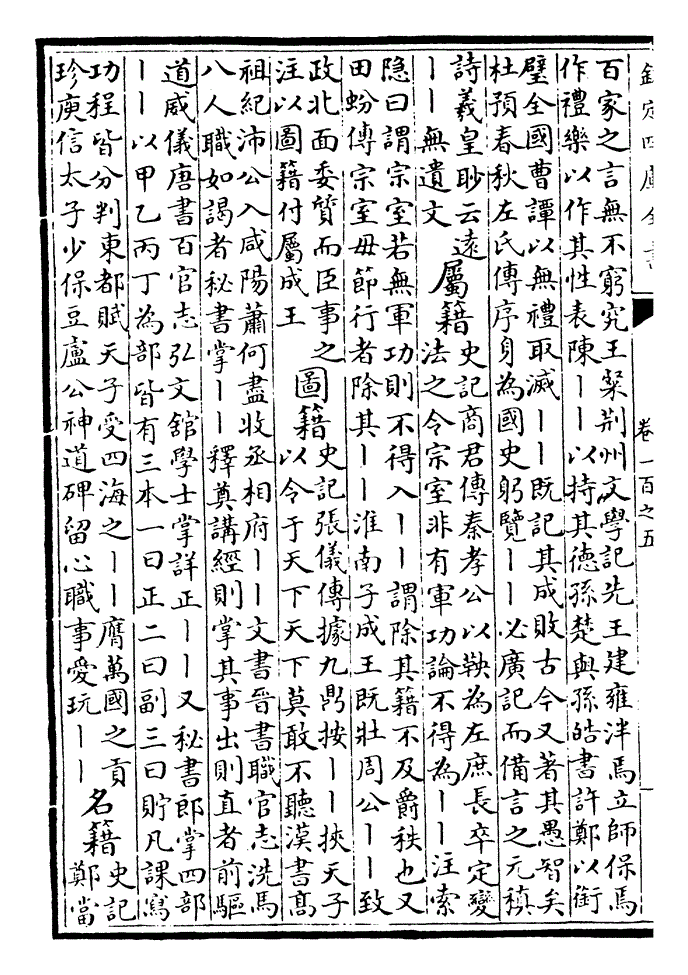 欽定四庫全書
卷一百之五
百家之言無不窮究王粲荆州文學記先王建雍泮焉立師保焉
作禮樂以作其性表陳丨丨以持其德孫楚與孫皓書許鄭以銜
璧全國曹譚以無禮取滅丨丨既記其成敗古今又著其愚智矣
杜預春秋左氏傳序身為國史躬覽丨丨必廣記而備言之元稹
詩羲皇眇云遠
丨丨無遺文
屬籍
史記商君傳秦孝公以鞅為左庶長卒定變
法之令宗室非有軍功論不得為丨丨注索
隐曰謂宗室若無軍功則不得入丨丨謂除其籍不及爵秩也又
田蚡傳宗室毋節行者除其丨丨淮南子成王既壯周公丨丨致
政北面委質而臣事之
注以圖籍付屬成王
圖籍
史記張儀傳據九鼎按丨丨挾天子
以令于天下天下莫敢不聽漢書髙
祖紀沛公入咸陽蕭何盡收丞相府丨丨文書晉書職官志洗馬
八人職如謁者秘書掌丨丨釋奠講經則掌其事出則直者前驅
道威儀唐書百官志弘文舘學士掌詳正丨丨又秘書郎掌四部
丨丨以甲乙丙丁為部皆有三本一曰正二曰副三曰貯凡課寫
功程皆分判東都賦天子受四海之丨丨膺萬國之貢
珍庾信太子少保豆盧公神道碑留心職事愛玩丨丨
名籍
史記
鄭當